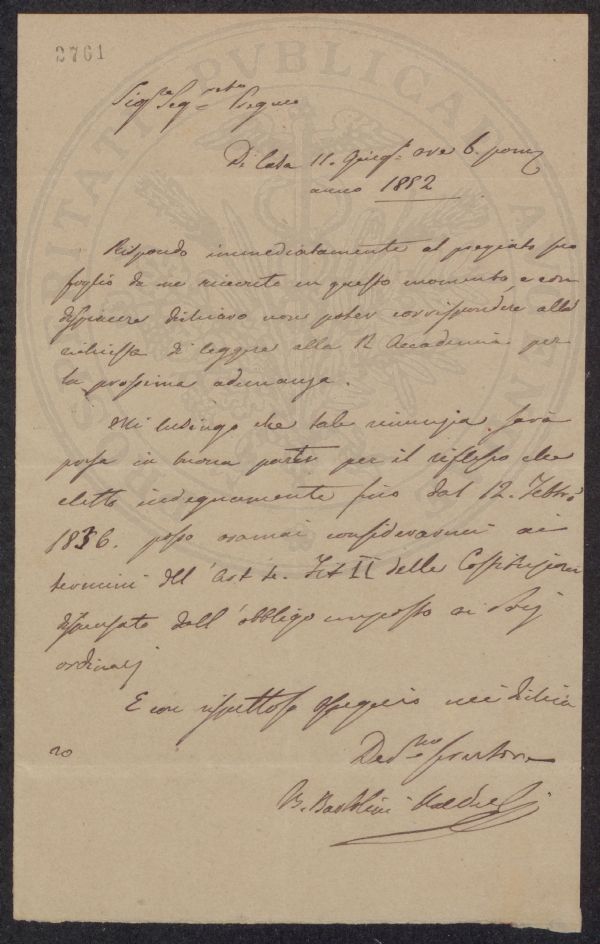 2761
PUBLICAE
Sig.re Seg.rio
Di Casa 11. Giug.o ore 6. pom
anno 1882
Rispondo immediatamente al pregiato suo
foglio da me ricevuto in questo momento e con
dispiacere dichiaro non poter corrispondere alla
richiesta di leggere alla R Accademia per
la prossima adunanza.
Mi lusingo che tale rinunzia sarà
presa in buona parte per il riflesso che
eletto indegnamente fino dal 12. Febbro
1836. posso oramai considerarmi ai
termini dell'Art. Tit II delle Costituzioni
dispensato dall'obbligo imposto ai Socj
ordinarj
E con rispettoso ossequio mi dichia
ro
Dev.mo servitore
B.